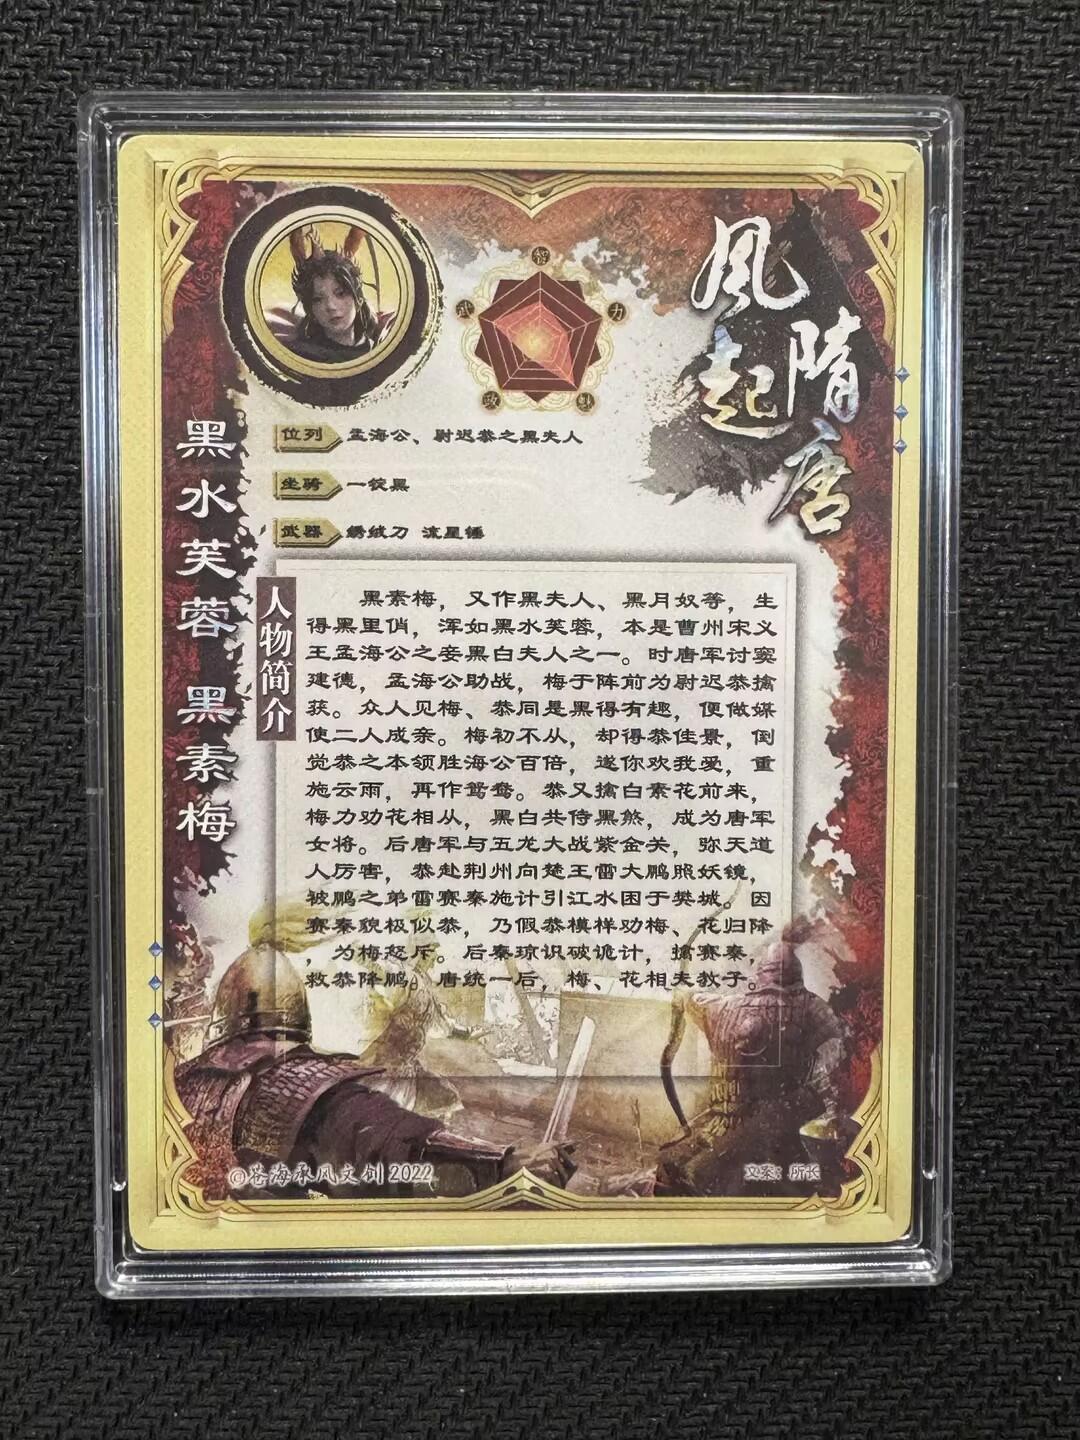 風起隋唐
智
武
力
政
魅
位列 孟海公、尉迟恭之黑夫人
坐骑 一锭黑
武器 绣绒刀 流星锤
黑水芙蓉 黑素梅
人物简介
黑素梅，又作黑夫人、黑月奴等，生
得黑里俏，浑如黑水芙蓉，本是曹州宋义
王孟海公之妾黑白夫人之一。时唐军讨窦
建德，孟海公助战，梅于阵前为尉迟恭擒
获。众人见梅、恭同是黑得有趣，便做媒
使二人成亲。梅初不从，却得恭佳景，倒
觉恭之本领胜海公百倍，遂你欢我爱，重
施云雨，再作鸳鸯。恭又擒白素花前来，
梅力劝花相从，黑白共侍黑煞，成为唐军
女将。后唐军与五龙大战紫金关，弥天道
人厉害，恭赴荆州向楚王雷大鹏照妖镜，
被鹏之弟雷赛秦施计引江水困于樊城。因
赛秦貌极似恭，乃假恭模样劝梅、花归降
，为梅怒斥。后秦琼识破诡计，擒赛秦，
救恭降鹏。唐统一后，梅、花相夫教子。
©苍海承风文创 2022
文案：所长